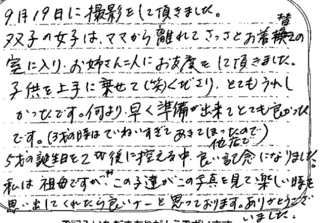 9月19日に撮影をして頂きました。
双子の女子は、ママから離れてさっさとお着替えの
室に入り、お姉さん二人にお支度をして頂きました。
子供を上手に乗せて(笑)くださり、とてもうれし
かったです。何より、早く準備が出来てとても良かった
です。(3歳の時は他店でていねいすぎてあきてしまったので)
5歳の誕生日を 後に控える中、良い記念になりました。
私は祖母ですが、この子達がこの写真を見て楽しい時を
思い出してくれたら良いナーと思っております。ありがとうご
ざいました。